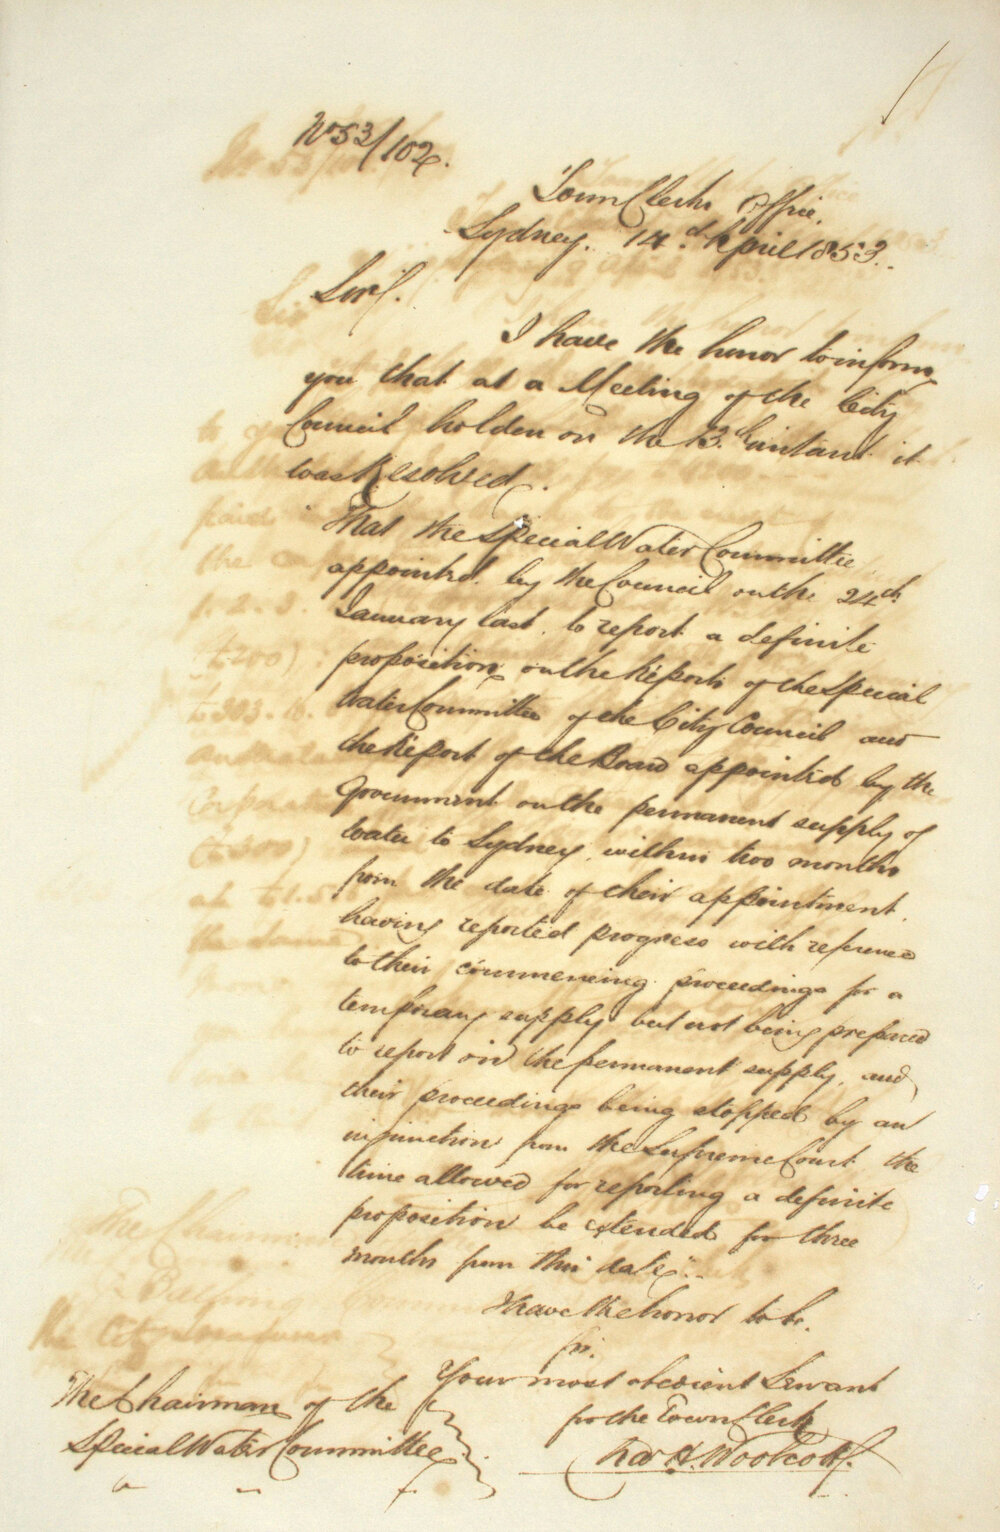 No 53/102.
Town Clerks Office.
Sydney. 14th April 1853.
Sir/.
I have the honor to inform
you that at a Meeting of the City
Council holden on the 13th instant it
was Resolved.
"That the Special Water Committee
appointed by the Council on the 24th
January last, to report a definite
proposition on the Reports of the Special
Water Committee of the City Council and
the Report of the Board appointed by the
Government on the permanent supply of
Water to Sydney, within two months
from the date of their appointment,
having reported progress with reference
to their commencing proceedings for a
temporary supply but not being prepared
to report on the permanent supply, and
their proceedings being stopped by an
injunction from the Supreme Court the
time allowed for reporting a definite
proposition be extended for three
months from this date".
I have the honor to be.
Sir.
Your most obedient Servant
for the Town Clerk
Chas H. Woolcott.
The Chairman of the
Special Water Committee